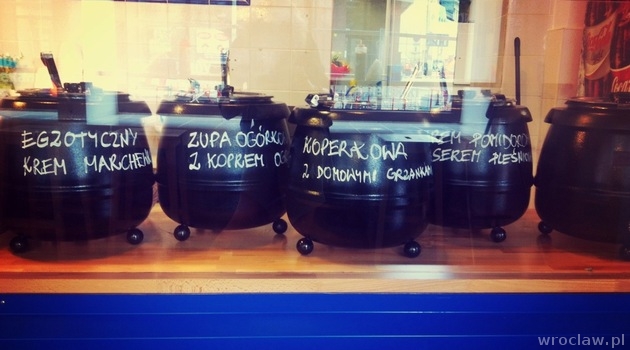 EGZOTYCZNY
KREM MARCHEW
ZUPA OGÓRKO
Z KOPREM
KOPERKOWA
Z DOMOWYMI GRZANKAMI
KREM POMIDORO
SEREM PLEŚNIO
wroclaw.pl